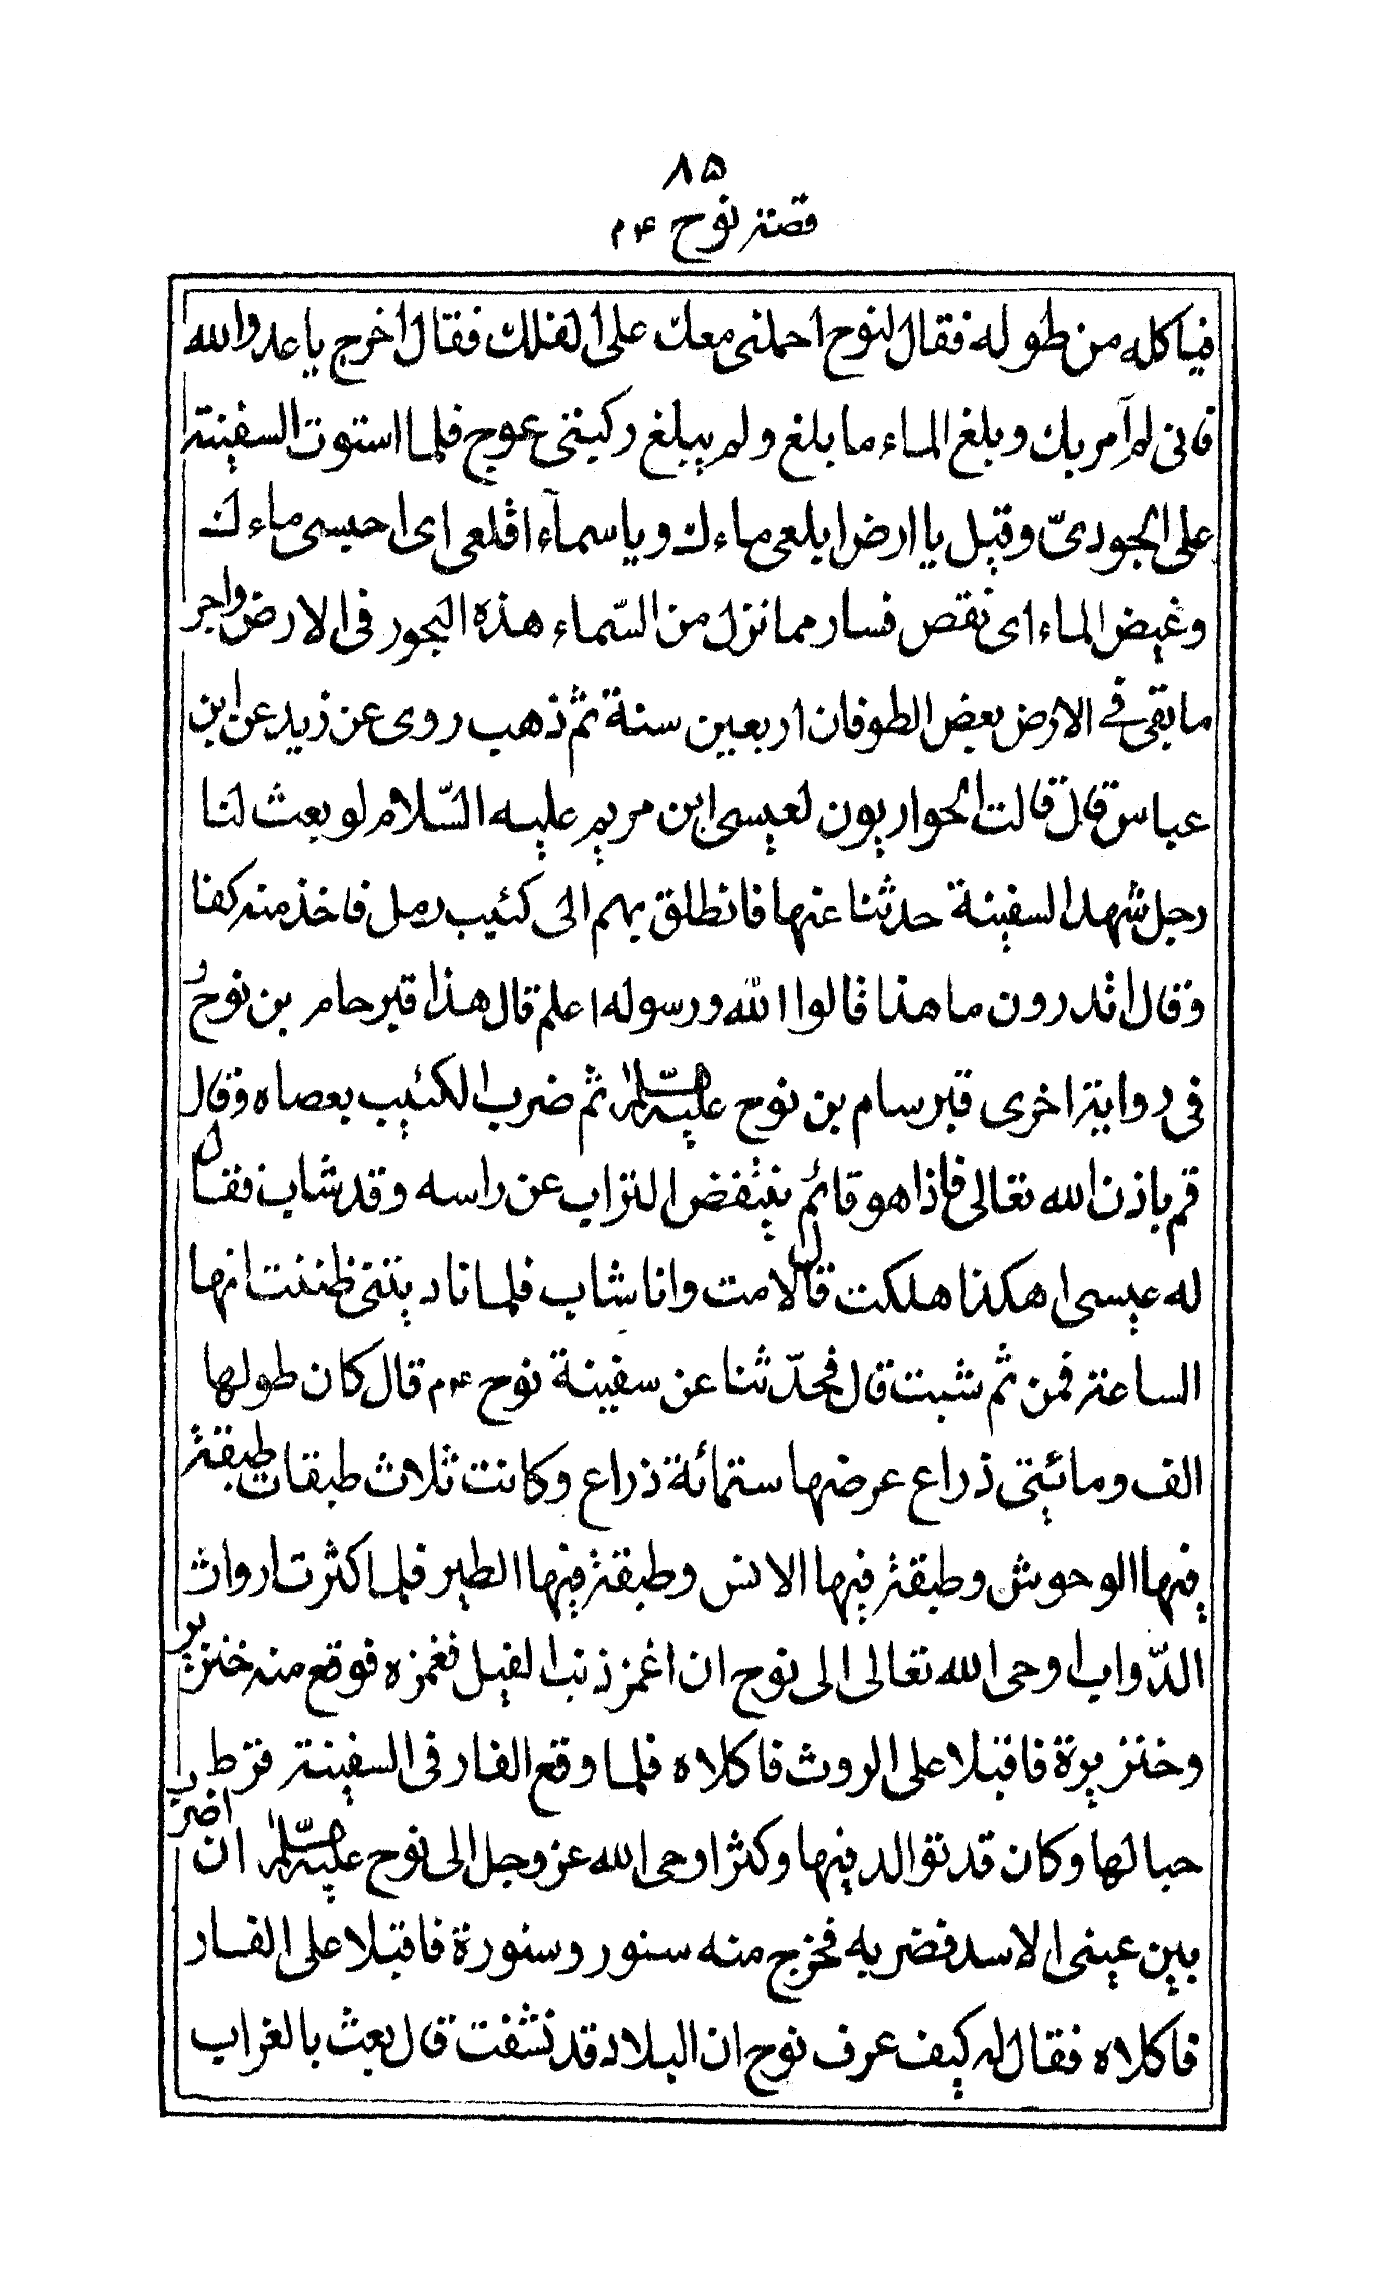 ۸۵
قصة نوح ۴م
فياكله من طوله فقال لنوح احملنى معك على الفلك فقال اخرج يا عدو الله
فانى لم آمر بك وبلغ الماء ما بلغ ولم يبلغ ركبتى عوج فلما استوت السفينة
على الجودىّ وقيل يا ارض ابلعى ماءك ويا سمآء اقلعى اى احبسى ماءك
وغيض الماء اى نقص فسار مما نزل من السّماء هذه البحور فى الارض واخر
ما بقى فى الارض بعض الطوفان اربعين سنة ثم ذهب روى عن زيد عن ابن
عباس قال قالت الحواريون لعيسى ابن مريم عليه السّلام لو بعث لنا
رجل شهد السفينة حدثنا عنها فانطلق بهم الى كثيب رمل فاخذ منه كفا
وقال اتدرون ما هذا قالوا الله ورسوله اعلم قال هذا قبر حام بن نوح و
فى رواية اخرى قبر سام بن نوح عليه السّلام ثم ضرب الكثيب بعصاه وقال
قم باذن الله تعالى فاذا هو قائم ينتفض التراب عن راسه وقد شاب فقال
له عيسى ا هكذا هلكت قال لا مت وانا شاب فلما ناديتنى ظننت انها
الساعة فمن ثم شبت قال فحدّثنا عن سفينة نوح ۴م قال كان طولها
الف ومائتى ذراع عرضها ستمائة ذراع وكانت ثلاث طبقات طبقة
فيها الوحوش وطبقة فيها الانس وطبقة فيها الطير فلما كثرت ارواث
الدّواب اوحى الله تعالى الى نوح ان اغمز ذنب الفيل فغمزه فوقع منه خنزير
وخنزيرة فاقبلا على الروث فاكلاه فلما وقع الفار فى السفينة قرط
حبالها وكان قد توالد فيها وكثر اوحى الله عز وجل الى نوح عليه السّلام ان اضرب
بين عينى الاسد فضربه فخرج منه سنور وسنورة فاقبلا على الفار
فاكلاه فقال له كيف عرف نوح ان البلاد قد نشفت قال بعث بالغراب